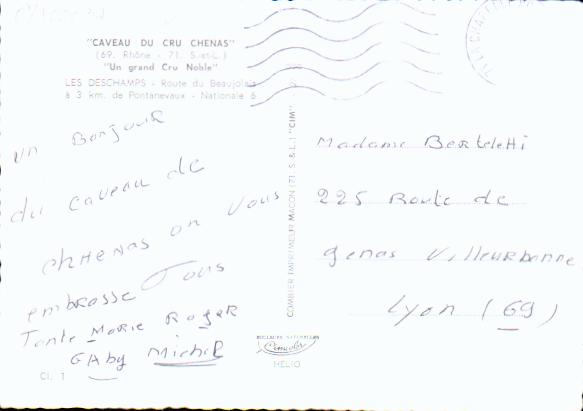 "CAVEAU DU CRU CHENAS"
(69. Rhône - 71. S.-et-L.)
"Un grand Cru Noble"
LES DESCHAMPS - Route du Beaujolais
à 3 km. de Pontanevaux - Nationale 6
un Bonjour
du caveau de
chHENAS on vous
embrasse Tous
Tante MaRie RogeR
GAby Michel
Cl. 1
COMBIER IMPRIMEUR MACON (71. S. & L.) "CIM"
Cimcolor
HELIO
Madame Berteletti
225 Route de
genas Villeurbanne
Lyon (69)